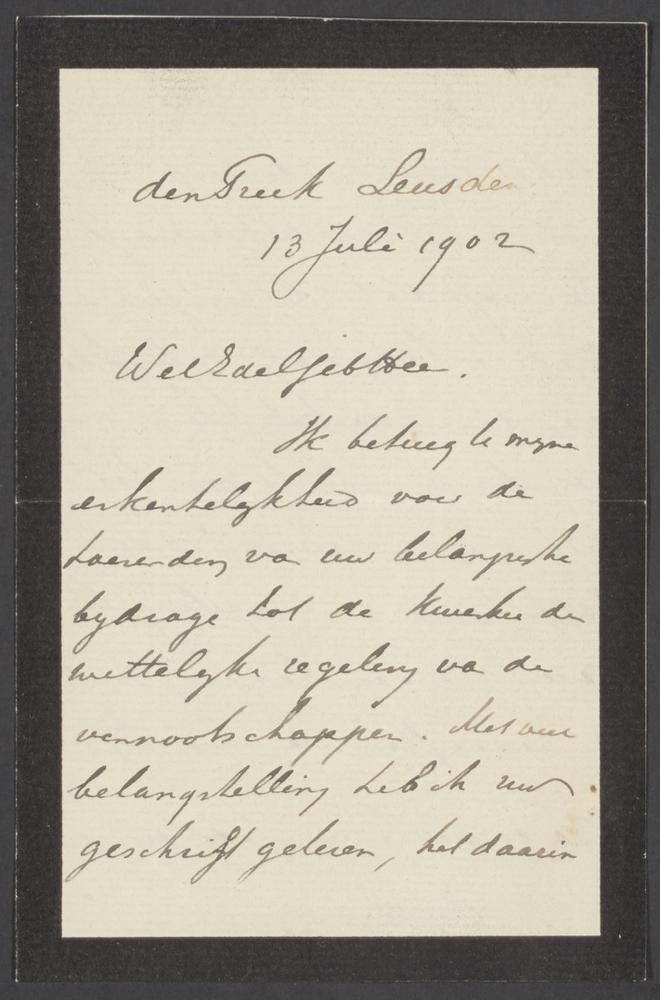 den Treek Leusden
13 Juli 1902
WelEdelGebHee.
Ik betuig U mijne
erkentelykheid voor de
toezending van uw belangrijke
bydrage tot de kwestie der
wettelyke regeling van de
vennootschappen. Met veel
belangstelling heb ik uw
geschrift gelezen, het daarin